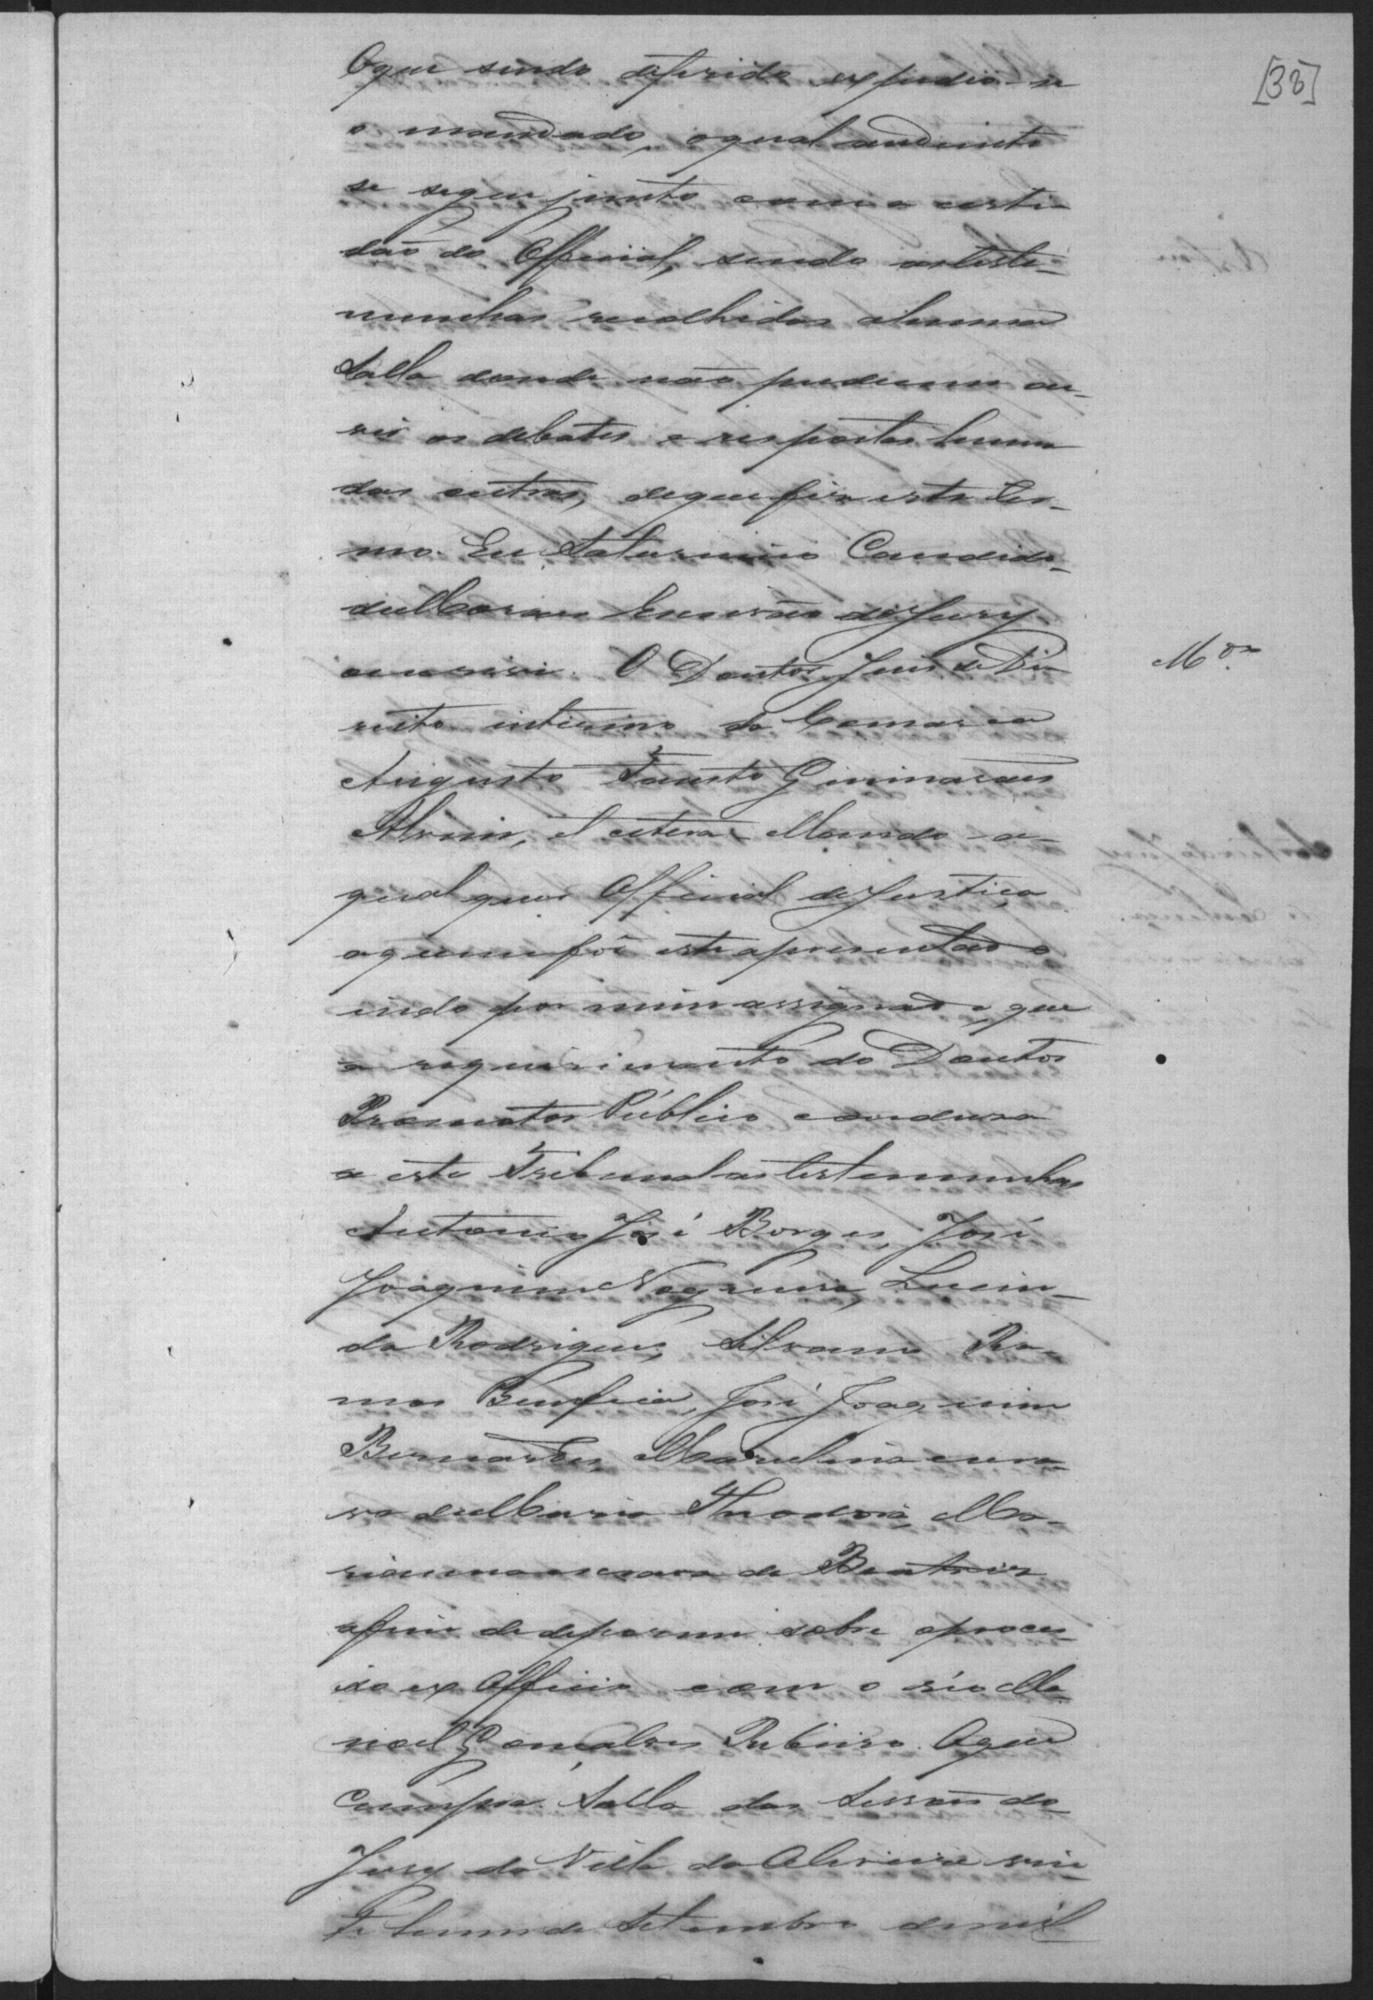 [38]
O que sendo deferido expedio-se
o mandado, o qual audiente
se segue junto com a certi-
dão do Official, sendo as teste-
munhas recolhidas a huma
Salla donde não pudecem ou-
vir os debates e respostas humas
das outras, de que fiz este ter-
mo. Eu Saturnino Candido
de Moraes Escrivão do Jury
o escrevi. O Doutor Juis de Di-
reito interino da Comarca
Augusto Fausto Guimaraens
Alvim, et cetera. Mando a
qual quer Official de Justiça
a quem for este apresentado
indo por mim assignado, que
a requerimento do Doutor
Promotor Público condusa
a este Tribunal as testemunhas
Antonio José Borges, José
Joaquim Nogueira, Lucin-
da Rodrigues, Silvana Ra-
mos Benfica, José Joaquim
Bernardes, Marcelina escra-
va de Maria Theodora, Ma-
rianna escrava de Beatris
afim de deporem sobre o proces-
so ex Officio com o réo Ma-
noel Gonçalves Ribeiro. O que
cumpra. Salla das Sessões do
Jury da Villa da Oliveira vin-
te hum de Setembro de mil
M.do